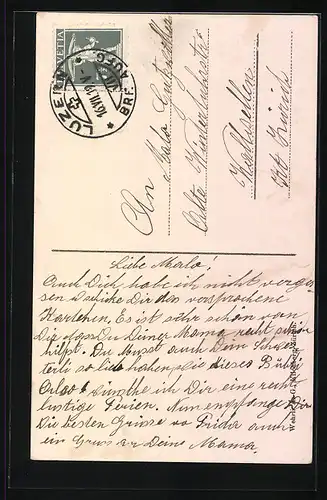 HELVETIA
LUZERN
16.VII.19
BRF. AUFG.
An
Alte Winterthurerstr.
Wallisellen
Ktt. Zürich
Liebe Marla!
Auch Dich habe ich nicht verges-
sen u. schicke Dir das versprochene
Kärtchen. Es ist sehr schön von
Dir dass Du Deiner Mama recht
hilfst. Du musst auch Dein Schwes-
terli so lieb haben, wie dieses Bubi
Also wünsche ich Dir eine recht
lustige Ferien. Nun empfange Dir
Die besten Grüsse v. Frida auch
ein Gruss an Deine Mama.